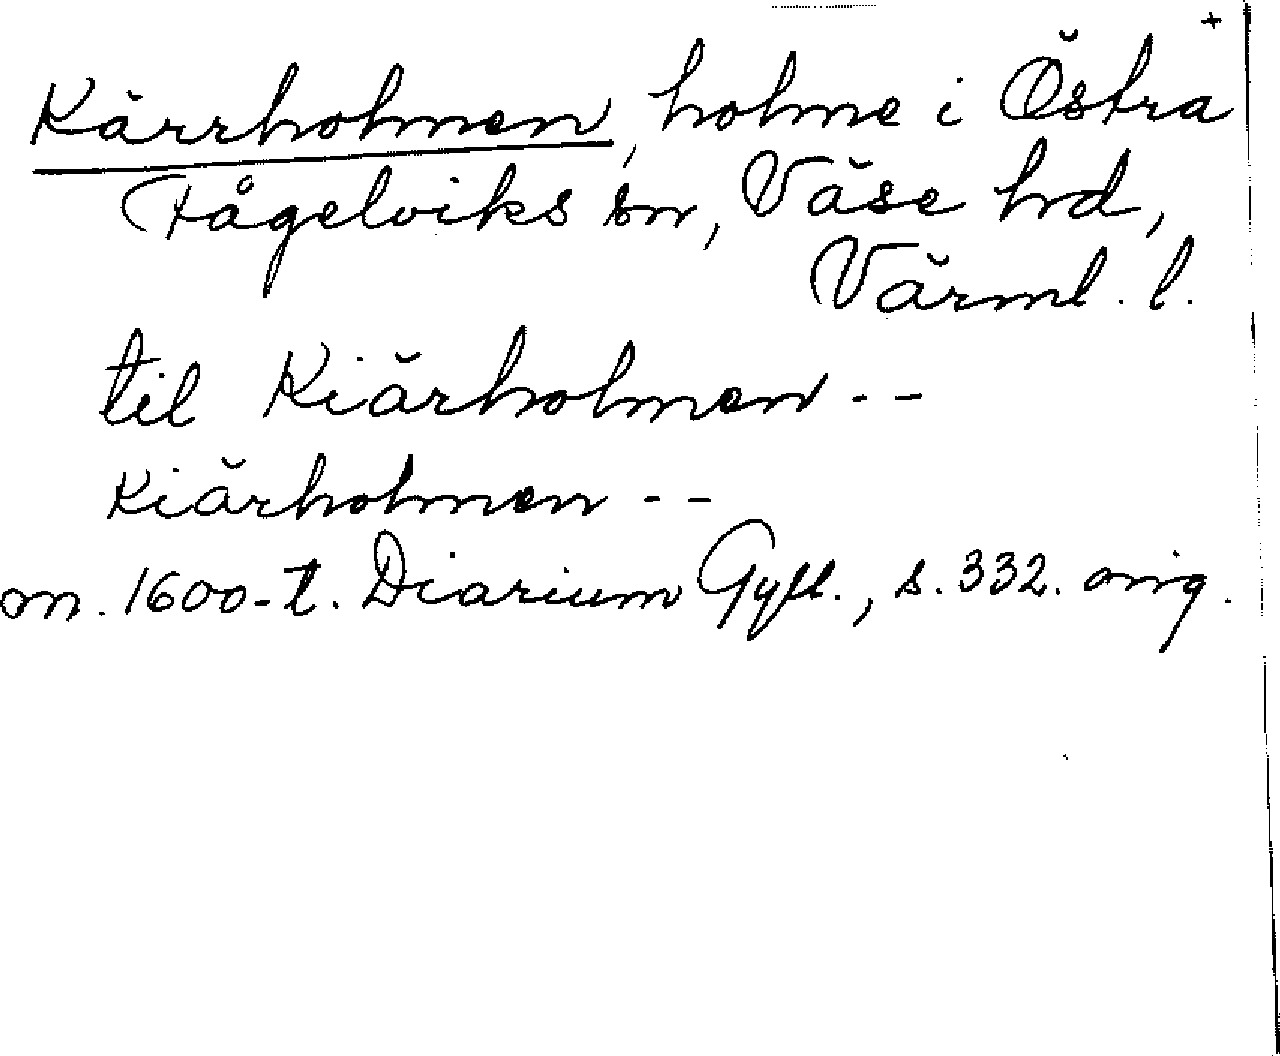 +
Kärrholmen, holme i Östra
Fågelviks sn, Väse hd,
Värml. l.
til Kiärholmen --
Kiärholmen --
m. 1600-t. Diarium Gyll., s. 332. orig.